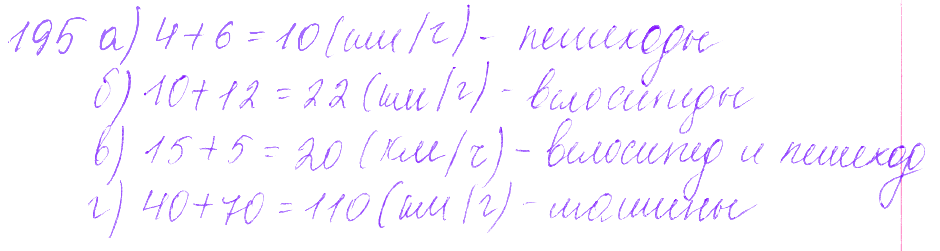 195 а) 4+6=10 (км/ч) - пешеходы
б) 10+12=22 (км/ч) - велосипеды
в) 15+5=20 (км/ч) - велосипед и пешеход
г) 40+70=110 (км/ч) - машины